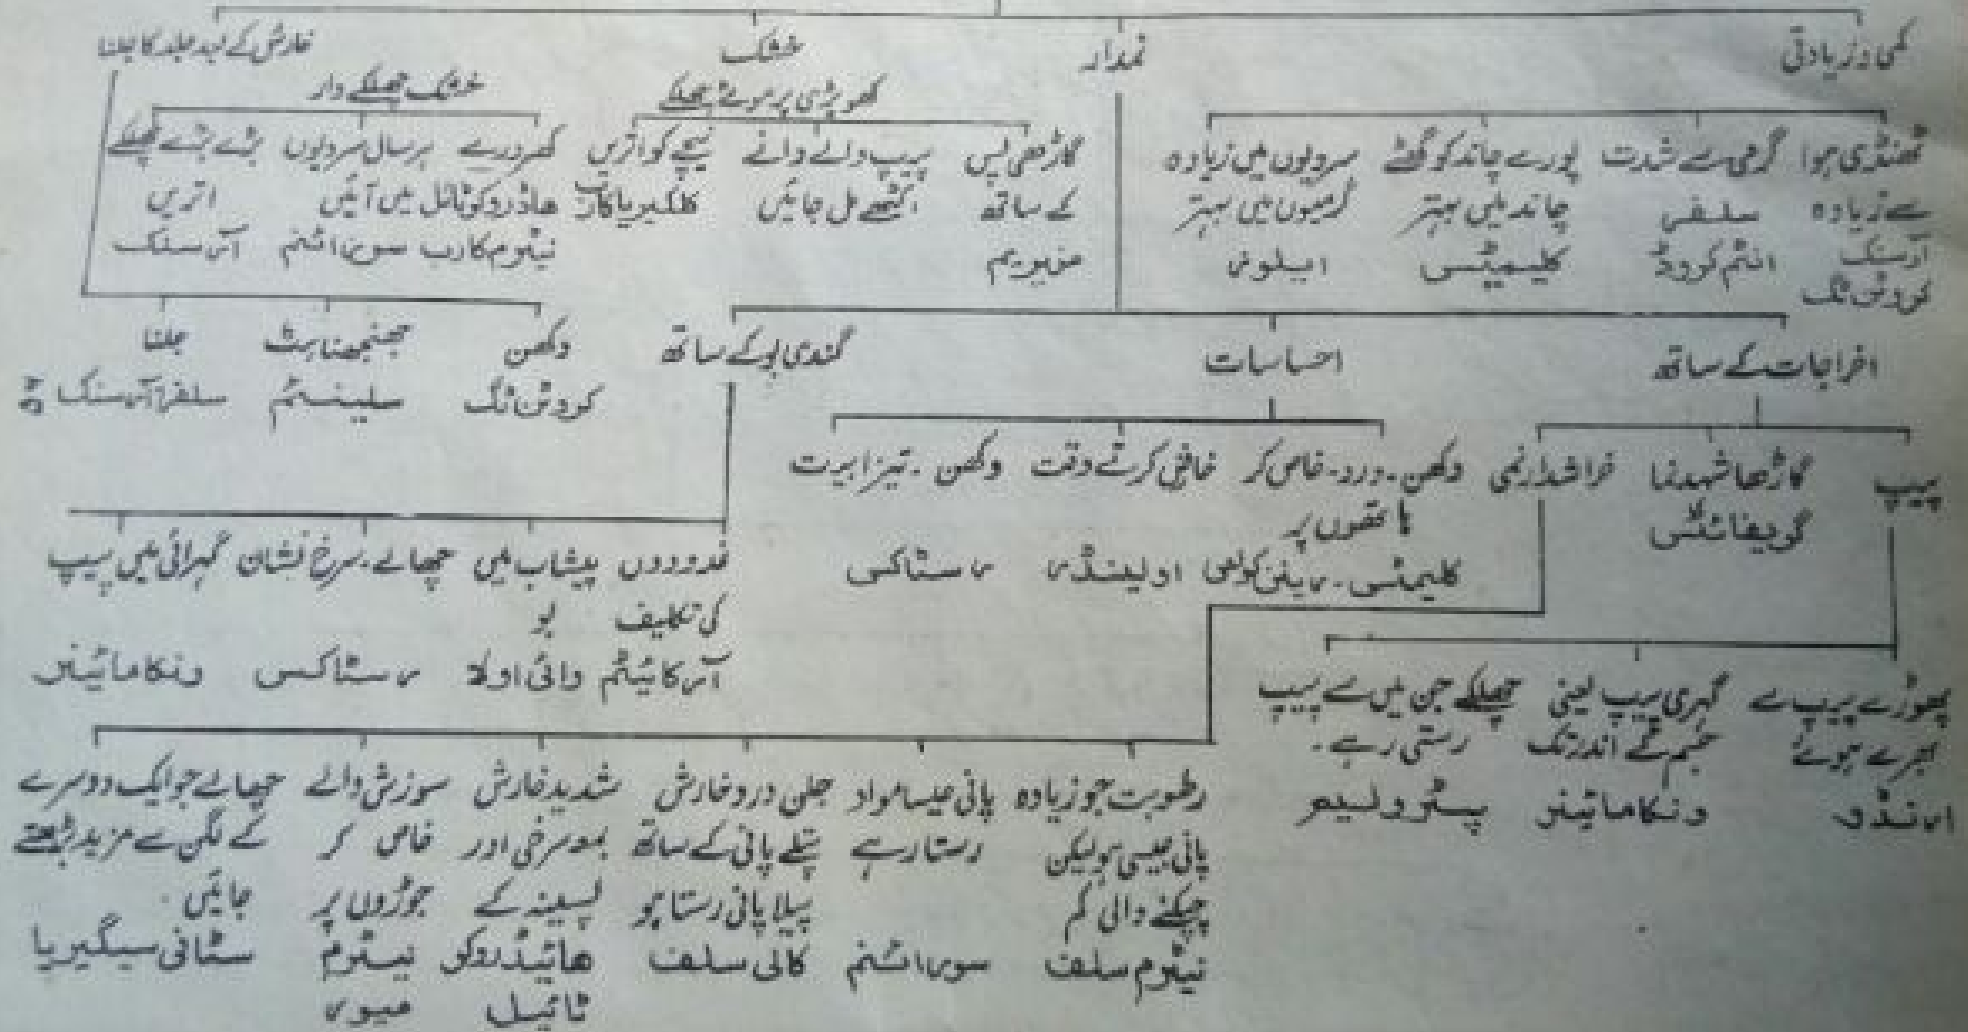 کمی و زیادتی
نمدار
خشک
خارش کے بعد جلد کا جلنا
کھوپڑی پر موٹے چھلکے
خشک چھلکے دار
ٹھنڈی ہوا سے زیادہ
آرسنک
کروٹن ٹگ
گرمی سے شدت
سلفر
انٹم کروڈ
پورے چاند کو گھٹے چاند میں بہتر
کلیمیٹس
سردیوں میں زیادہ
گرمیوں میں بہتر
ایلو
گاڑھی لیس
کے ساتھ
میزیریم
پیپ والے دانے
اکٹھے مل جائیں
نیچے کو اتریں
کلکیریا کارب
کھردرے
ھائڈروکوٹائل
نیٹرم کارب
ہر سال سردیوں
میں آئیں
سورائنم
بڑے بڑے چھلکے
اتریں
آرسنک
دکھن
کروٹن ٹگ
جھنجھناہٹ
سلینیم
جلنا
سلفر آرسنک
اخراجات کے ساتھ
احساسات
گندی بو کے ساتھ
پیپ
گاڑھا شہد نما
گریفائٹس
خراشدار نمی
دکھن۔ درد۔ خاص کر
ہاتھوں پر
کلیمٹس۔
خارش کرتے وقت
اولینڈر
دکھن۔ تیزابیت
رسٹاکس
غدودوں
کی تکلیف
آرکٹیم
پیشاب میں
بو
وائی اولا
چھالے۔ سرخ نشان
رسٹاکس
گہرائی میں پیپ
ونکا مائینر
پھوڑے پیپ سے
بھرے ہوئے
گہری پیپ یعنی
جسم کے اندر تک
ونکا مائینر
چھلکے جن میں سے پیپ
رستی رہے۔
پٹرولیم
رطوبت جو زیادہ
پانی جیسی ہو لیکن
چپکنے والی کم
نیٹرم سلف
پانی جیسا مواد
رستا رہے
سورائنم
جلن درد خارش
پتلے پانی کے ساتھ
پیلا پانی رستا ہو
کالی سلف
شدید خارش
بمعہ سرخی اور
پسینہ کے
ھائیڈروکو
ٹائیل
سوزش والے
خاص کر
جوڑوں پر
نیٹرم
میور
چھالے جو ایک دوسرے
کے لگنے سے مزید بڑھتے
جائیں۔
سٹافی سیگیریا